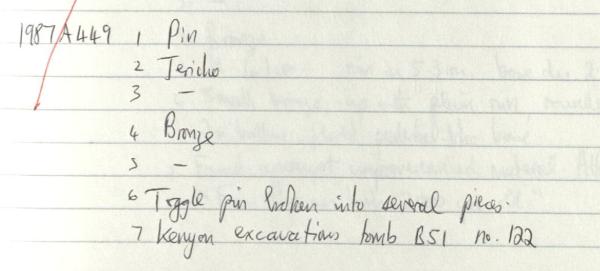 1987A449 1 Pin
2 Jericho
3 —
4 Bronze
5 —
6 Toggle pin broken into several pieces.
7 Kenyon excavations tomb B51 no. 122